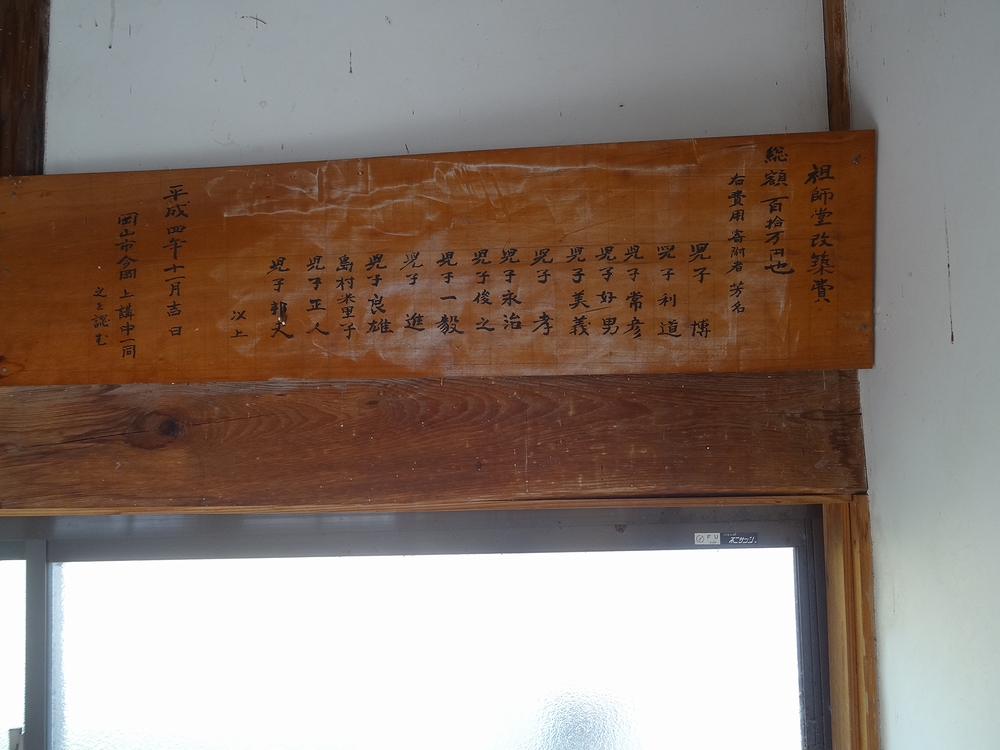 祖師堂改築費
総額 百拾万円也
右費用寄附者 芳名
児子 博
児子 利道
児子 常彦
児子 好男
児子 美義
児子 孝
児子 永治
児子 俊之
児子 一毅
児子 進
児子 良雄
島村米里子
児子 正人
児子 邦夫
以上
平成四年十一月吉日
岡山市今岡 上講中一同
之を認む
不二サッシ